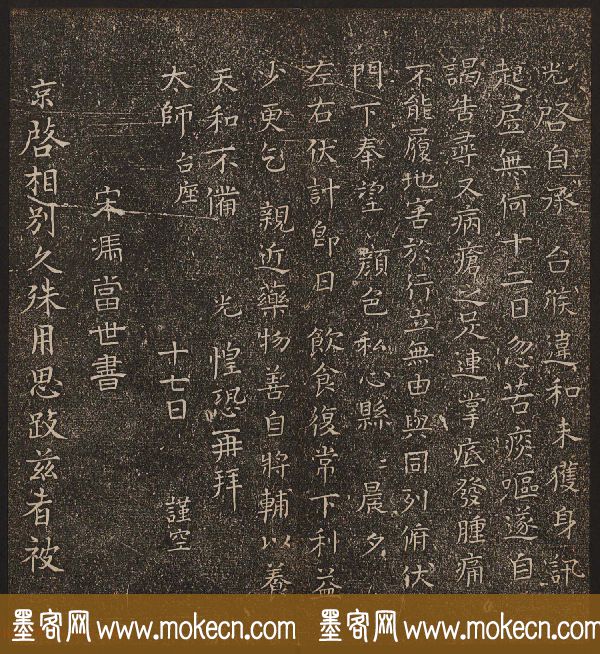 光啓自承 台候違和未獲身訊
起居無何十二日忽苦痰嘔遂自
謁告尋又病瘡之足連掌底發腫痛
不能履地害於行立無由與同列俯伏
門下奉望 顔色私心縣〻晨夕
左右伏計即日 飲食復常下利益
少更乞 親近藥物善自將輔以養
天和不備 光 惶恐再拜
太師 台座 十七日 謹空
宋馮當世書
京啓相别久殊用思跂兹者被
墨客网 www.mokecn.com 墨客网 www.mokecn.com